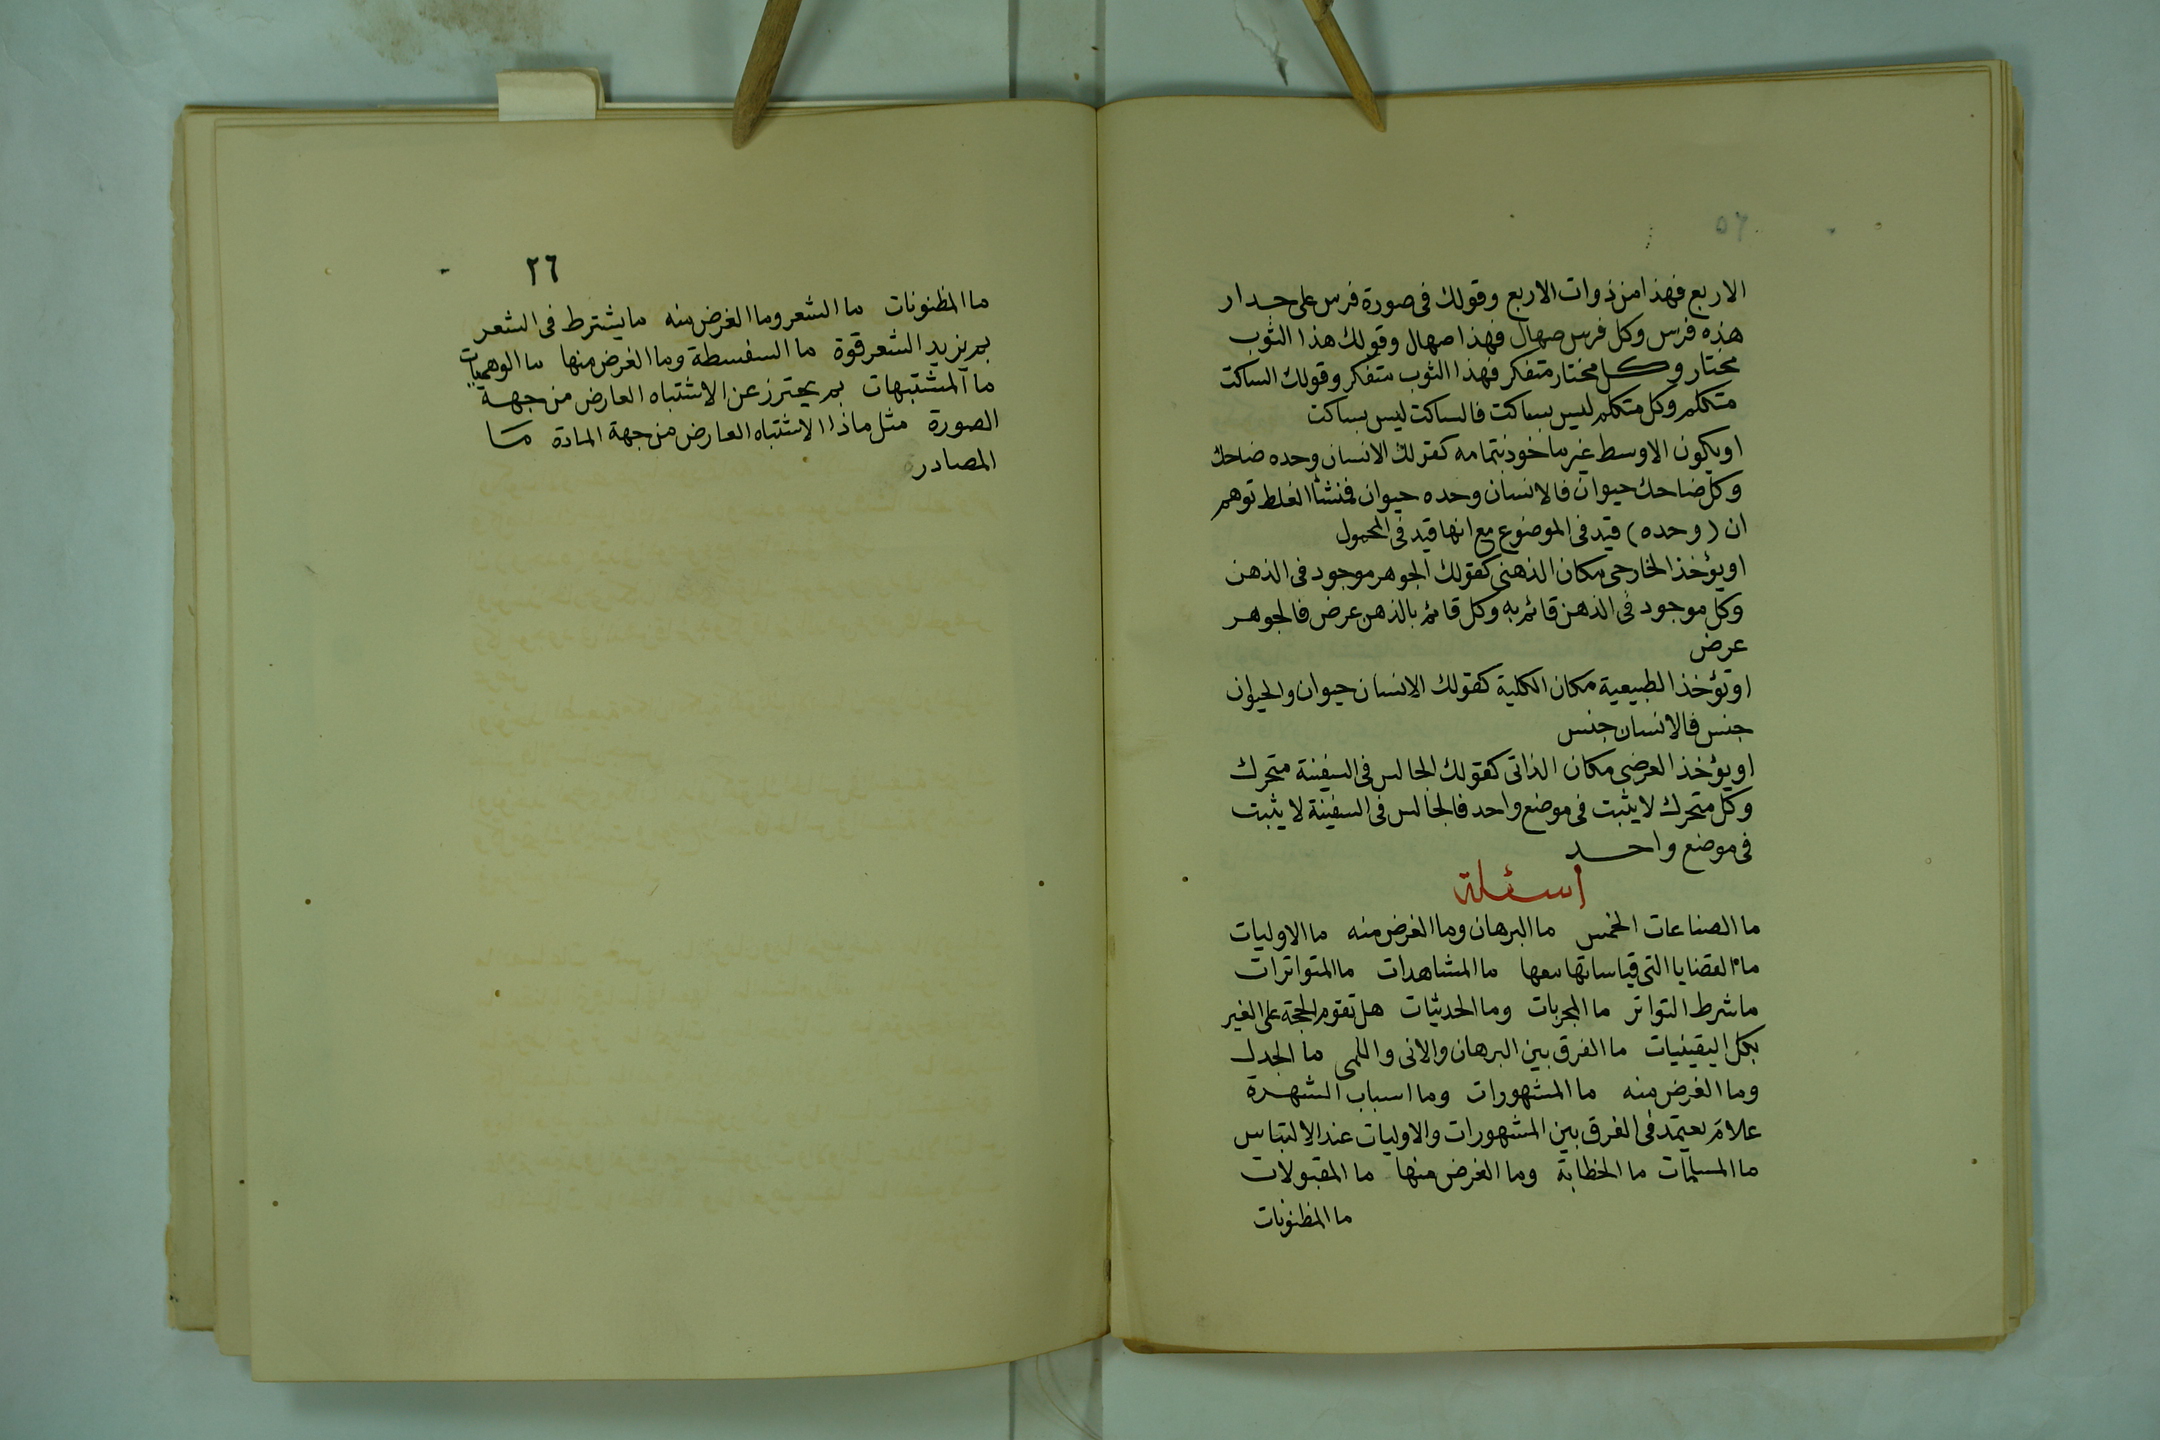 ٥٢
الاربع فهذا من ذوات الاربع وقولك فى صورة فرس على جدار
هذه فرس وكل فرس صهال فهذا صهال وقولك هذا الثوب
مختار وكل مختار متفكر فهذا الثوب متفكر وقولك الساكت
متكلم وكل متكلم ليس بساكت فالساكت ليس بساكت
او يكون الاوسط غير ماخوذ بتمامه كقولك الانسان وحده ضاحك
وكل ضاحك حيوان فالانسان وحده حيوان فمنشأ الغلط توهم
ان (وحده) قيد فى الموضوع مع انها قيد فى المحمول
او يؤخذ الخارجى مكان الذهنى كقولك الجوهر موجود فى الذهن
وكل موجود فى الذهن قائم به وكل قائم بالذهن عرض فالجوهر
عرض
او تؤخذ الطبيعية مكان الكلية كقولك الانسان حيوان والحيوان
جنس فالانسان جنس
او يؤخذ العرضى مكان الذاتى كقولك الجالس فى السفينة متحرك
وكل متحرك لا يثبت فى موضع واحد فالجالس فى السفينة لا يثبت
فى موضع واحد
أسئلة
ما الصناعات الخمس ما البرهان وما الغرض منه ما الاوليات
ما القضايا التى قياساتها معها ما المشاهدات ما المتواترات
ما شرط التواتر ما المجربات وما الحدثيات هل تقوم الحجة على الغير
بكل اليقينيات ما الفرق بين البرهان والانى واللمى ما الجدل
وما الغرض منه ما المشهورات وما اسباب الشهرة
علام يعتمد فى الفرق بين المشهورات والاوليات عند الالتباس
ما المسلمات ما الخطابة وما الغرض منها ما المقبولات
ما المظنونات
٢٦
ما المظنونات ما الشعر وما الغرض منه ما يشترط فى الشعر
بم نزيد الشعر قوة ما السفسطة وما الغرض منها ما الوهميات
ما المشتبهات بم يحترز عن الاشتباه العارض من جهة
الصورة مثل ماذا الاشتباه العارض من جهة المادة ما
المصادرة